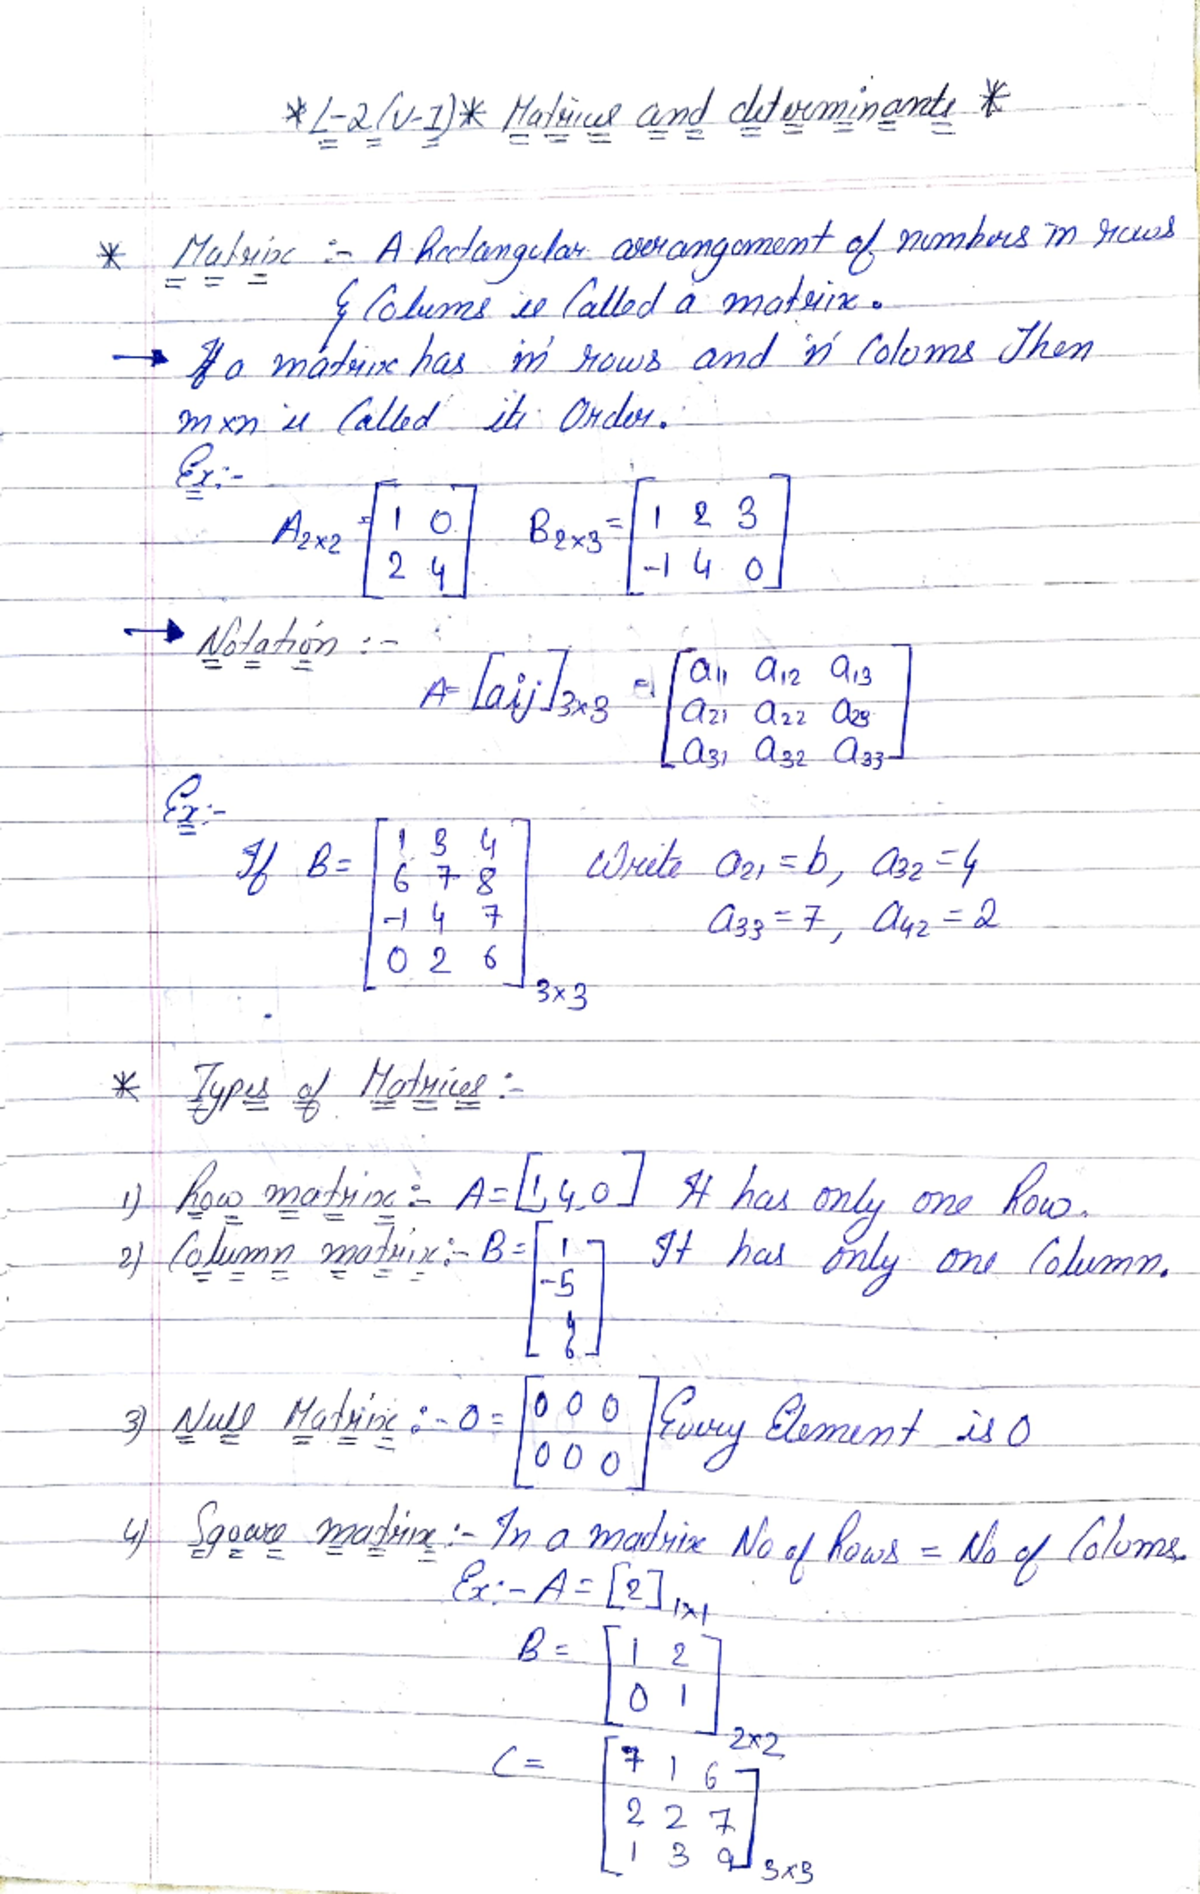 *L-2(U-I)* Matrices and determinants *
* Matrix :- A Rectangular arrangement of numbers in rows
& Colums is Called a matrix.
→ If a matrix has 'm' rows and 'n' Coloms Then
m×n is Called its Order.
Ex:-
A2×2 = [1 0 B2×3 = [1 2 3
2 4] -1 4 0]
→ Notation :-
A = [aij]3×3 = [a11 a12 a13
a21 a22 a23
a31 a32 a33]
Ex:-
If B = [1 3 4 Write a21 = b, a32 = 4
6 7 8
-1 4 7 a33 = 7, a42 = 2
0 2 6]3×3
* Types of Matrices :-
1) Row matrix :- A = [1,4,0] It has only one Row.
2) Column matrix :- B = [1 It has only one Column.
-5
4
6]
3) Null Matrix :- O = [0 0 0 Every Element is 0
0 0 0]
4) Square matrix :- In a matrix No of Rows = No of Coloms.
Ex:- A = [2]1×1
B = [1 2
0 1]2×2
C = [7 1 6
2 2 7
1 3 9]3×3